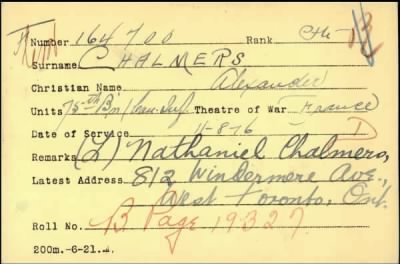 Number 164700 Rank Cpl B
Surname CHALMERS
Christian Name Alexander
Units 75th Bn Can. Inf. Theatre of War France
Date of Service 11-8-16 D
Remarks (L) Nathaniel Chalmers,
Latest Address 812 Windermere Ave.,
West Toronto, Ont.
Roll No. B Page 19327
200m.-6-21.